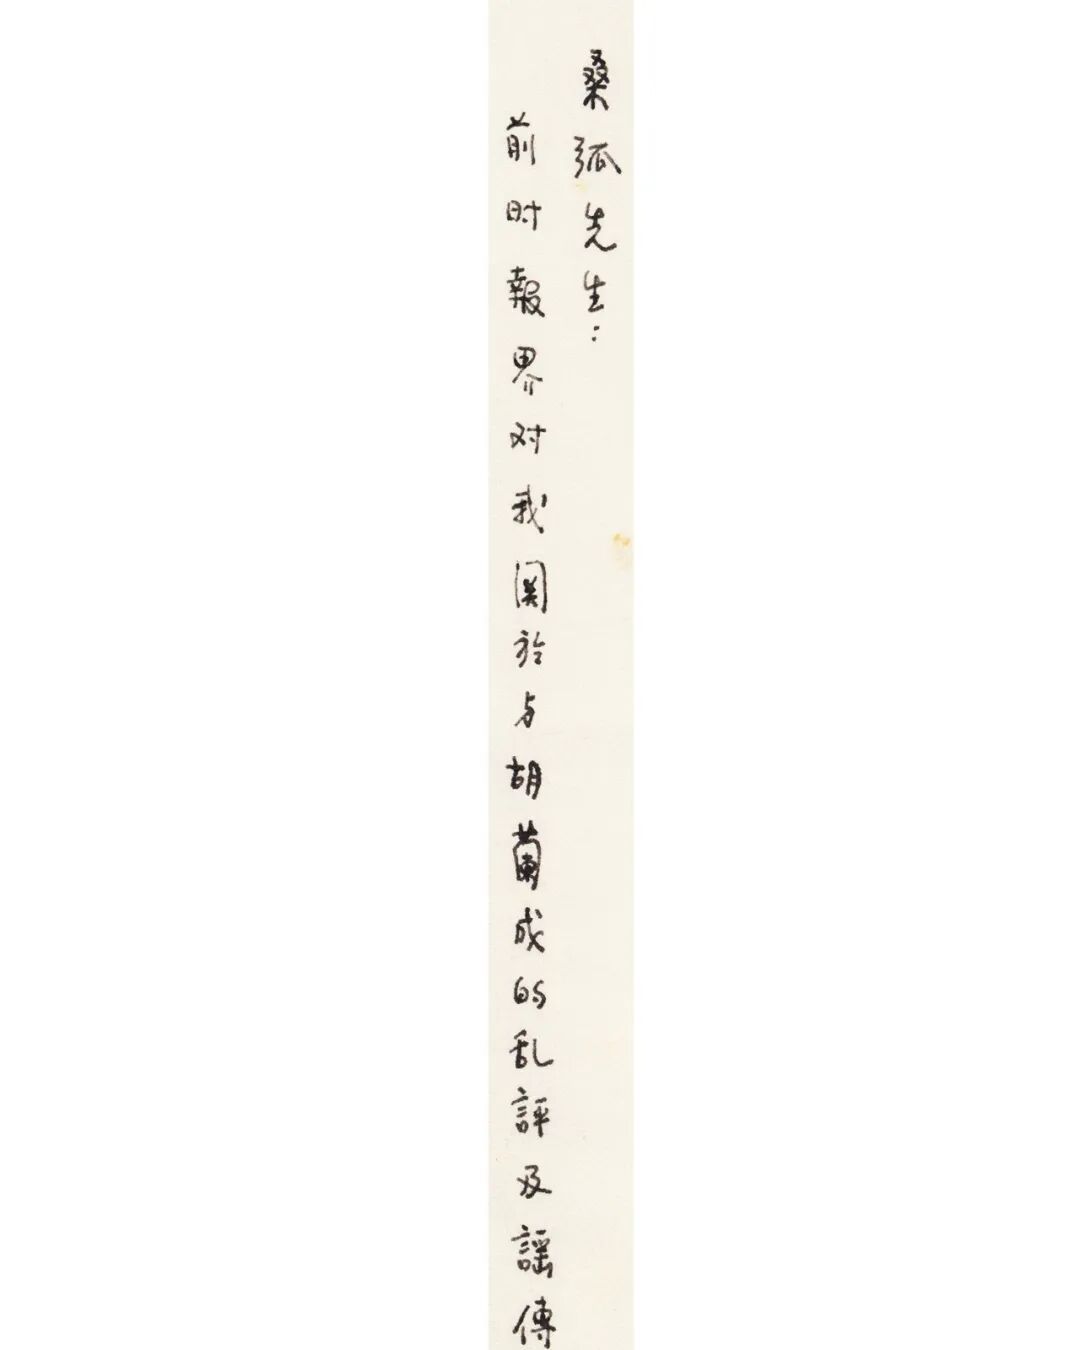 桑弧先生：
前时報界对我関於与胡蘭成的乱評及謡傳